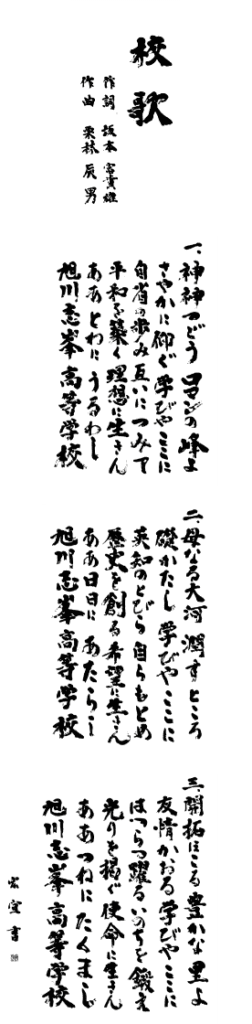 校歌
作詞 坂本富貴雄
作曲 栗林辰男
一、神神つどう ロマンの峰よ
さやかに仰ぐ 学びやここに
自省の歩み 互いにつみて
平和を築く 理想に生きん
ああ とわに うるわし
旭川志峯高等学校
二、母なる大河 潤すところ
礎かたし 学びや ここに
英知のとびら 自らもとめ
歴史を創る 希望に生きん
ああ 日日に あたらし
旭川志峯高等学校
三、開拓ほこる 豊かな里よ
友情かおる 学びや ここに
はつらつ躍る いのちを鍛え
光りを掲ぐ 使命に生きん
ああ つねに たくまし
旭川志峯高等学校